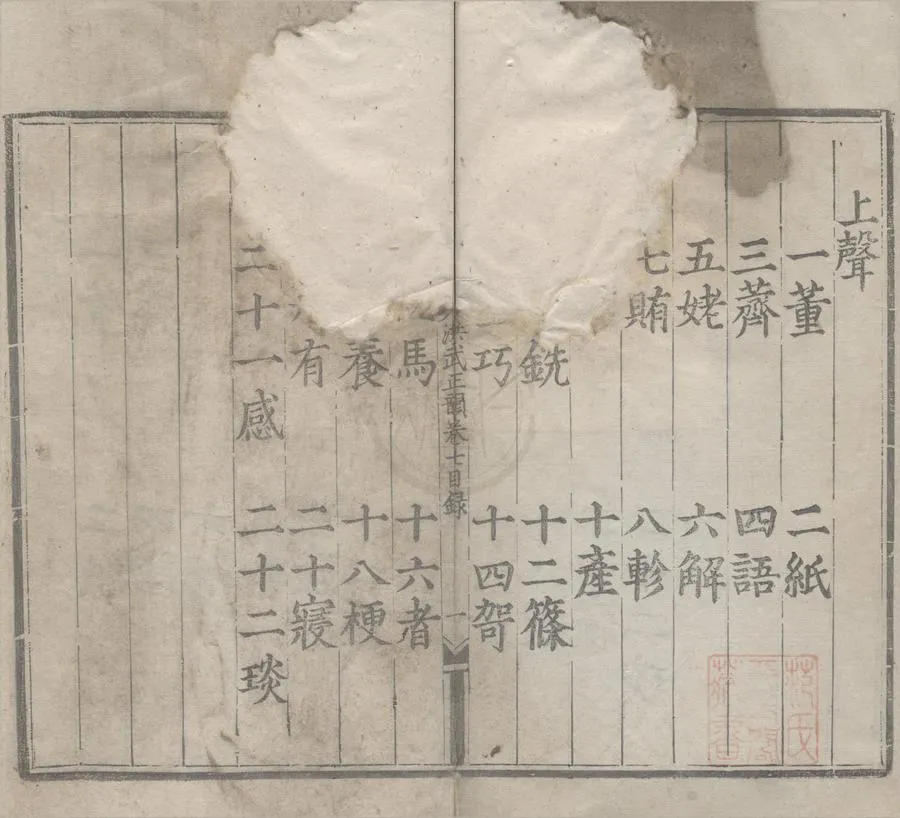 上聲
一董 二紙
三薺 四語
五姥 六解
七賄 八軫
十產
銑 十二篠
巧 十四哿
洪武正韻卷七目錄 一
馬 十六者
養 十八梗
有 二十寑
二十一感 二十二琰